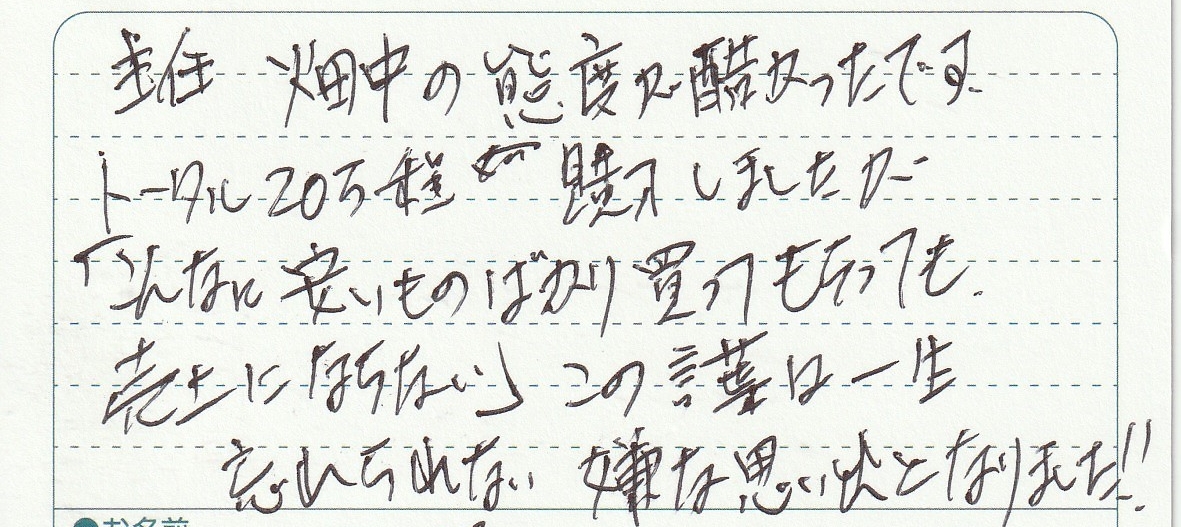 主任 畑中の態度が酷かったです。
トータル20万程 購入しましたが
「こんなに安いものばかり買ってもらっても、
売上にならない」この言葉は一生
忘れられない 嫌な思い出となりました!!
●お名前